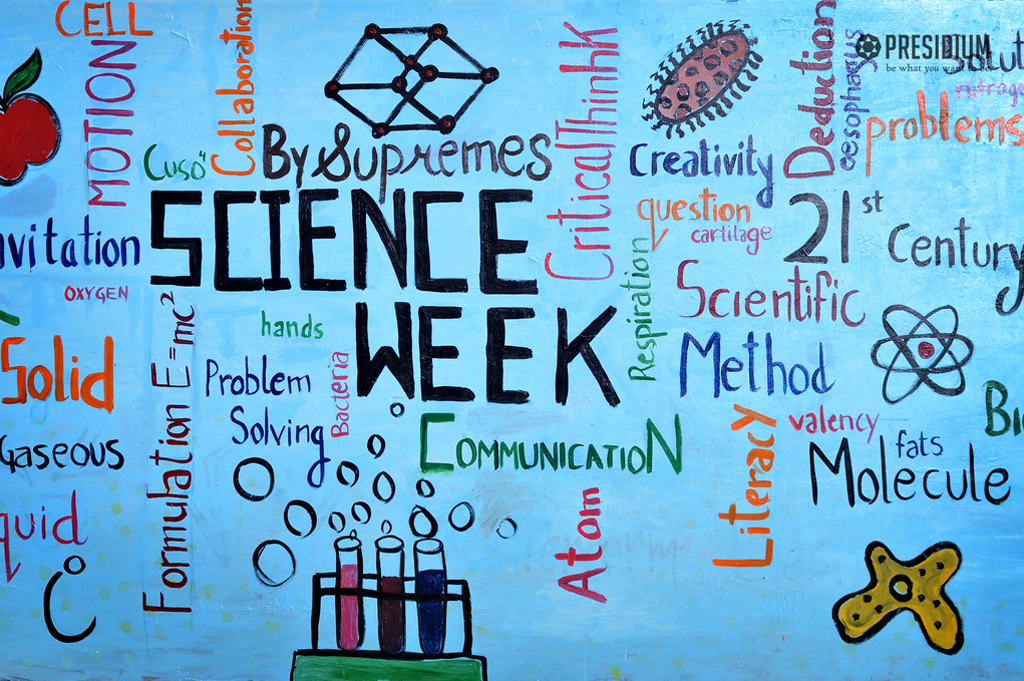 CELL
MOTION
Collaboration
Cuso"
By Supremes
SCIENCE
WEEK
CriticalThinhK
Creativity
Deduction
oesophagus
PRESIDIUM
be what you want to be
Solut
nitroge
problems
question
cartilage
21st
Century
nvitation
OXYGEN
Solid
Gaseous
quid
Formulation E=mc²
hands
Problem
Solving
Bacteria
Respiration
Scientific
Method
COMMUNICATION
Literacy
valency
fats
Molecule
Bi
Atom